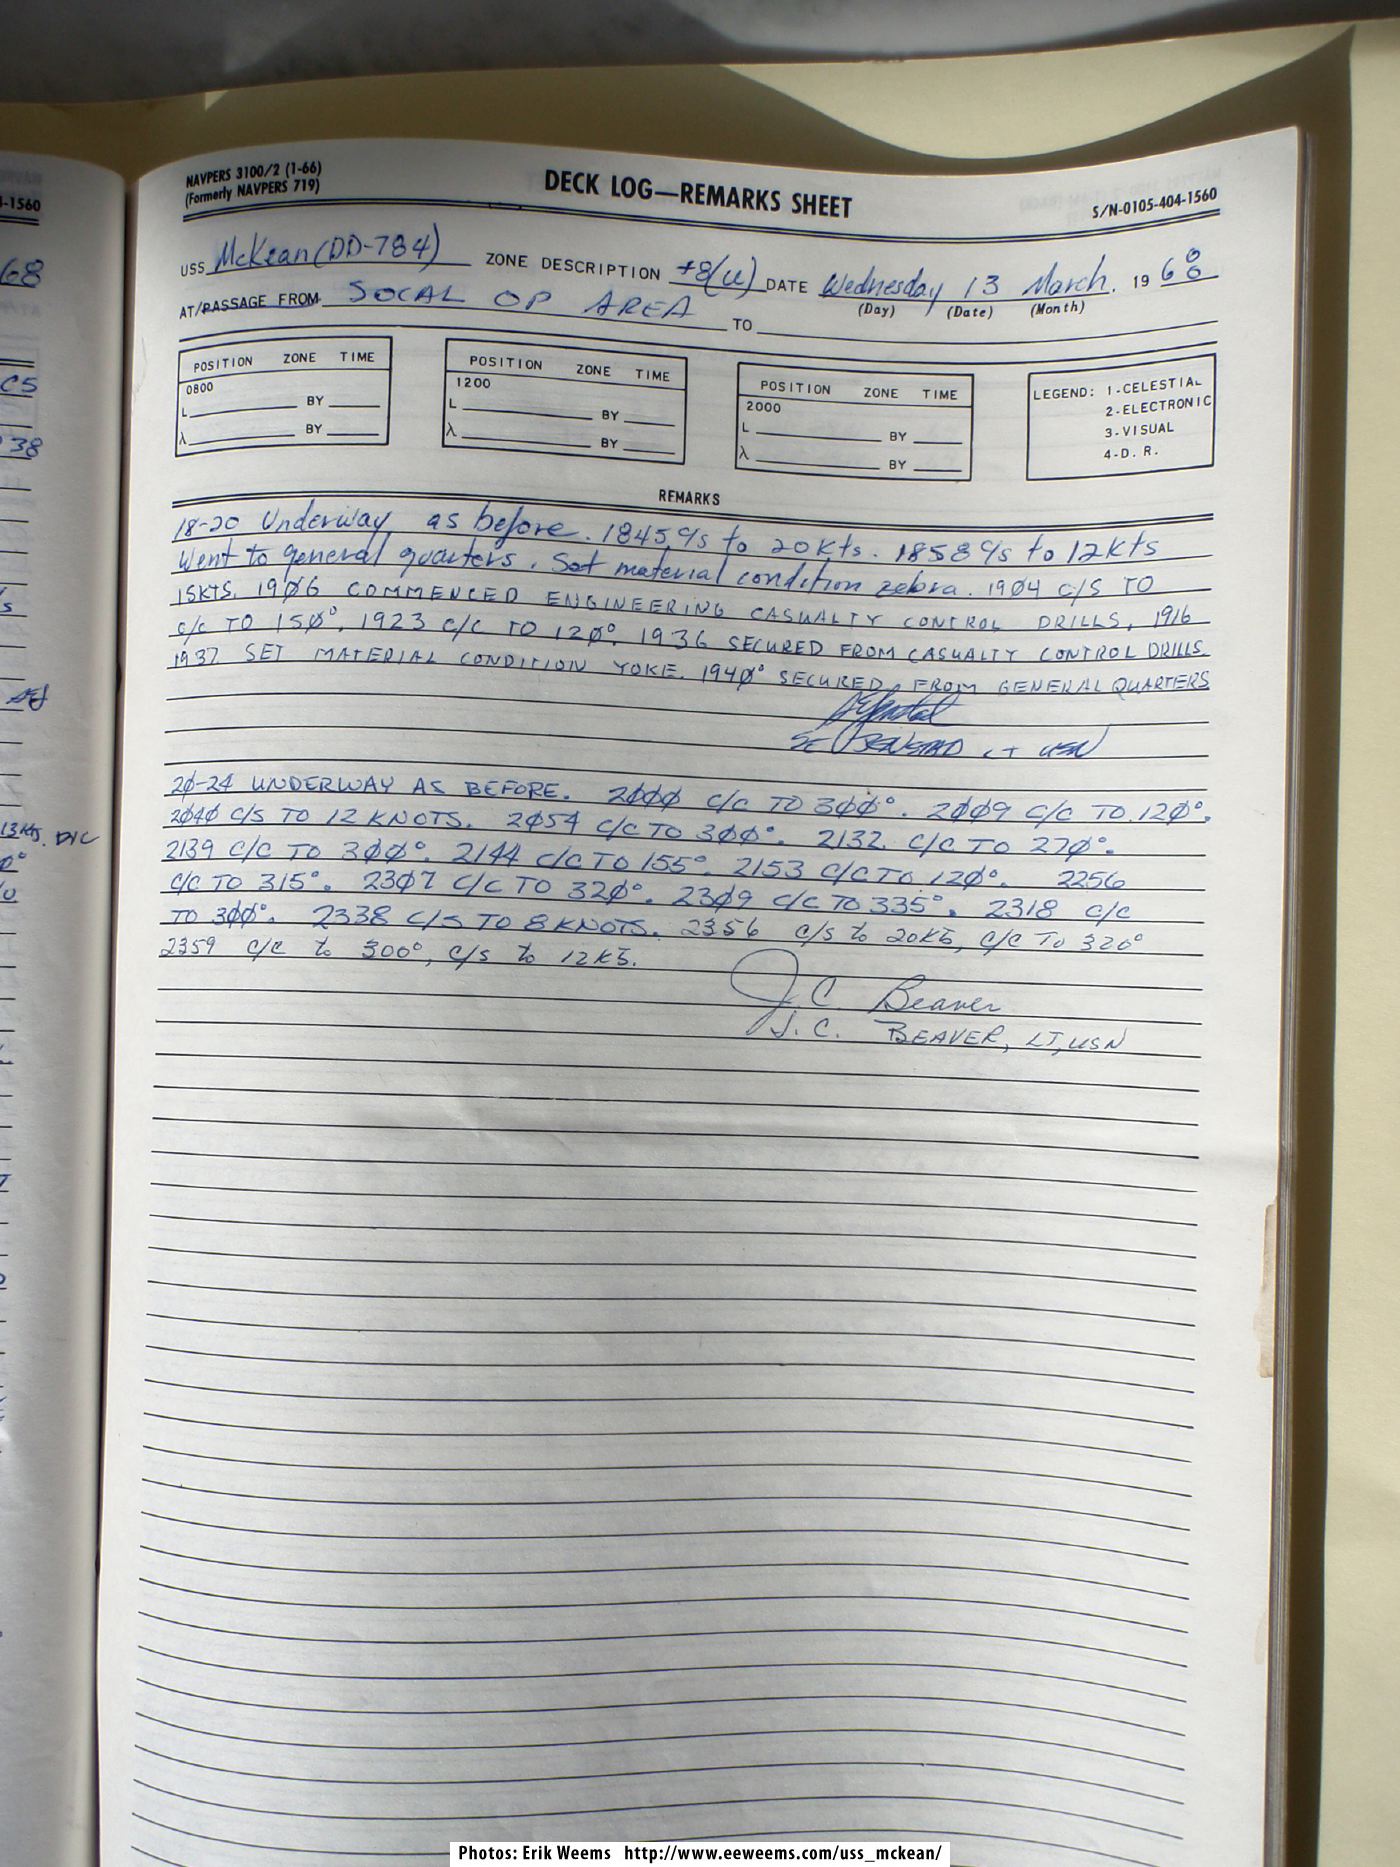 NAVPERS 3100/2 (1-66)
(Formerly NAVPERS 719)
DECK LOG—REMARKS SHEET
S/N-0105-404-1560
USS McKean (DD-784) ZONE DESCRIPTION +8(U) DATE Wednesday 13 March. 19 68
(Day) (Date) (Month)
AT/PASSAGE FROM SOCAL OP AREA TO
POSITION ZONE TIME
0800
L BY
λ BY
POSITION ZONE TIME
1200
L BY
λ BY
POSITION ZONE TIME
2000
L BY
λ BY
LEGEND: 1-CELESTIAL
2-ELECTRONIC
3-VISUAL
4-D. R.
REMARKS
18-20 Underway as before. 1845 c/s to 20Kts. 1858 c/s to 12Kts
Went to general quarters. Set material condition zebra. 1904 c/s TO
15KTS. 19Ø6 COMMENCED ENGINEERING CASUALTY CONTROL DRILLS, 1916
c/c TO 15Ø°. 1923 c/c TO 12Ø°. 1936 SECURED FROM CASUALTY CONTROL DRILLS.
1937 SET MATERIAL CONDITION YOKE. 194Ø° SECURED FROM GENERAL QUARTERS
LT USN
2Ø-24 UNDERWAY AS BEFORE. 2ØØØ C/C TO 3ØØ°. 2ØØ9 C/C TO 12Ø°.
2Ø4Ø C/S TO 12 KNOTS. 2Ø54 C/C TO 3ØØ°. 2132 C/C TO 27Ø°.
2139 C/C TO 3ØØ°. 2144 C/C TO 155°. 2153 C/C TO 12Ø°. 2256
C/C TO 315°. 23Ø7 C/C TO 32Ø°. 23Ø9 C/C TO 335°. 2318 C/C
TO 3ØØ°. 2338 C/S TO 8 KNOTS. 2356 c/s to 20Kts, c/c To 320°
2359 c/c to 300°, c/s to 12Kts.
J.C. Beaver
J.C. BEAVER, LT, USN
-1560
68
C5
38
13Kts. D/C
Photos: Erik Weems http://www.eeweems.com/uss_mckean/